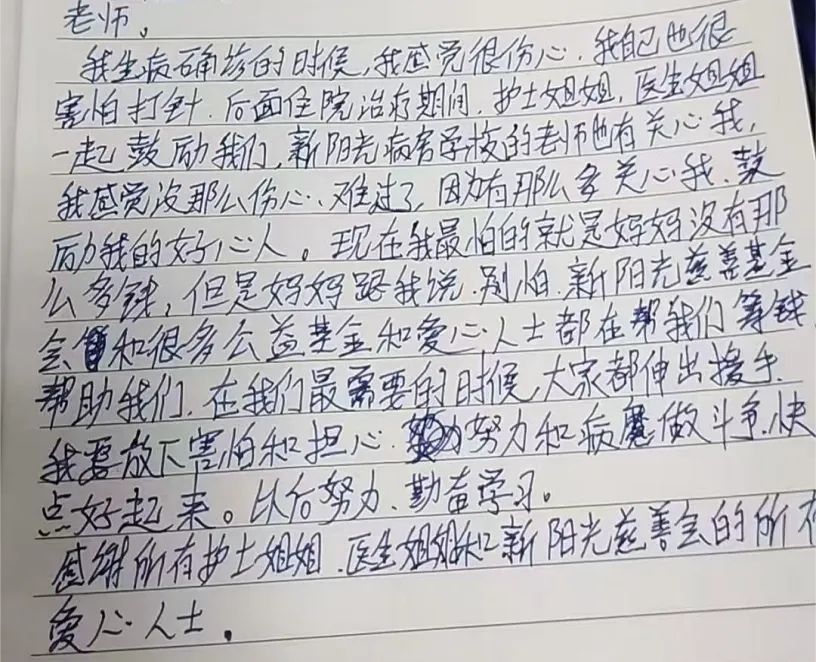 老师。
我生病确诊的时候，我感觉很伤心，我自己也很
害怕打针，后面住院治疗期间，护士姐姐，医生姐姐
一起鼓励我们，新阳光病房学校的老师也有关心我，
我感觉没那么伤心、难过了，因为有那么多关心我、鼓
励我的好心人。现在我最怕的就是妈妈没有那
么多钱，但是妈妈跟我说，别怕，新阳光慈善基金
会和很多公益基金和爱心人士都在帮我们筹钱，
帮助我们，在我们最需要的时候，大家都伸出援手，
我要放下害怕和担心，努力和病魔做斗争，快
点好起来。以后努力、勤奋学习。
感谢所有护士姐姐、医生姐姐和新阳光慈善会的所有
爱心人士。